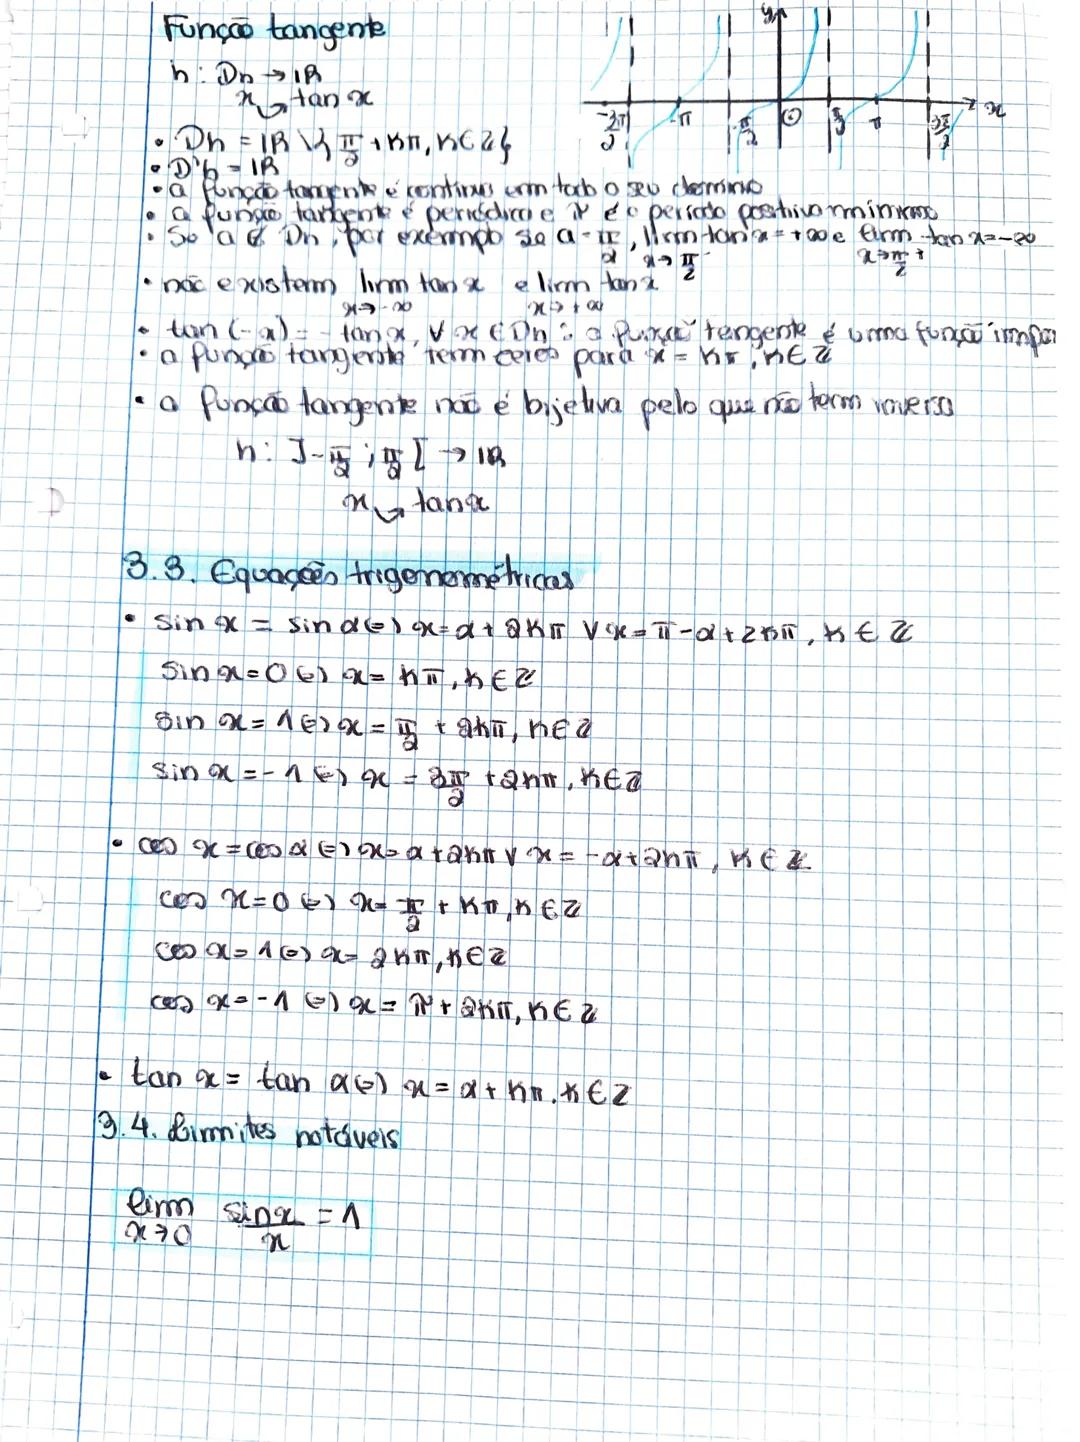 Função tangente
h: Dh → IR
x ↪ tan x
y
x
-3π/2 -π -π/2 0 π/2 π 3π/2
• Dh = IR \ { π/2 + kπ, k ∈ Z }
• D'h = IR
• a função tangente é continua em todo o seu domínio
• a função tangente é periódica e π é o período positivo mínimo
• Se a ∉ Dh, por exemplo se a = π/2, lim x→π/2⁻ tan x = +∞ e lim x→π/2⁺ tan x = -∞
• não existem lim x→-∞ tan x e lim x→+∞ tan x
• tan(-x) = -tan x, ∀ x ∈ Dh : a função tangente é uma função impar
• a função tangente tem zeros para x = kπ, k ∈ Z
• a função tangente não é bijetiva pelo que não tem inversa
h: ]-π/2 ; π/2[ → IR
x ↪ tan x
3.3. Equações trigonométricas
• sin x = sin α (=) x = α + 2kπ ∨ x = π - α + 2kπ, k ∈ Z
sin x = 0 (=) x = kπ, k ∈ Z
sin x = 1 (=) x = π/2 + 2kπ, k ∈ Z
sin x = -1 (=) x = 3π/2 + 2kπ, k ∈ Z
• cos x = cos α (=) x = α + 2kπ ∨ x = -α + 2kπ, k ∈ Z
cos x = 0 (=) x = π/2 + kπ, k ∈ Z
cos x = 1 (=) x = 2kπ, k ∈ Z
cos x = -1 (=) x = π + 2kπ, k ∈ Z
• tan x = tan α (=) x = α + kπ, k ∈ Z
3.4. Limites notáveis
lim x→0 sin x/x = 1